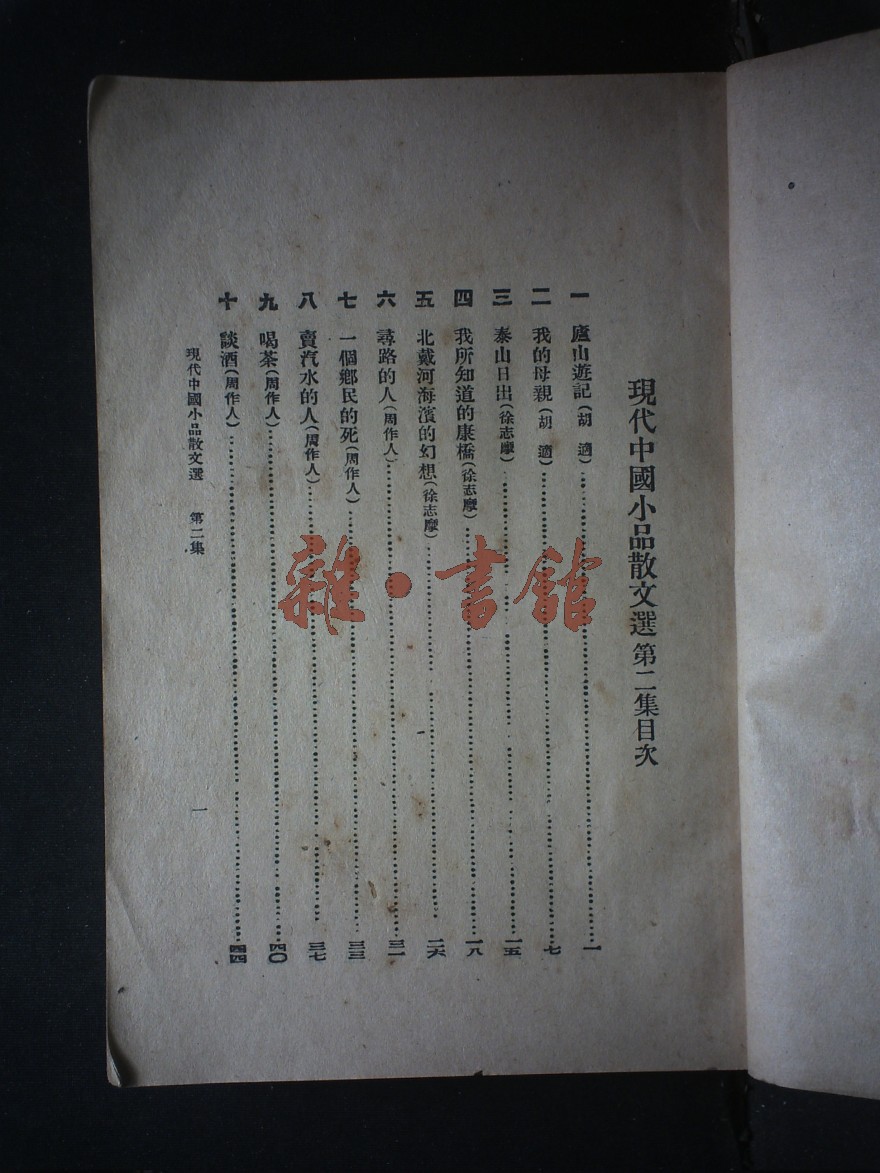 現代中國小品散文選第二集目次
一 廬山遊記(胡 適)……一
二 我的母親(胡 適)……七
三 泰山日出(徐志摩)……一五
四 我所知道的康橋(徐志摩)……一八
五 北戴河海濱的幻想(徐志摩)……二六
六 尋路的人(周作人)……三一
七 一個鄉民的死(周作人)……三三
八 賣汽水的人(周作人)……三七
九 喝茶(周作人)……四〇
十 談酒(周作人)……四四
現代中國小品散文選 第二集
一
雜·書館